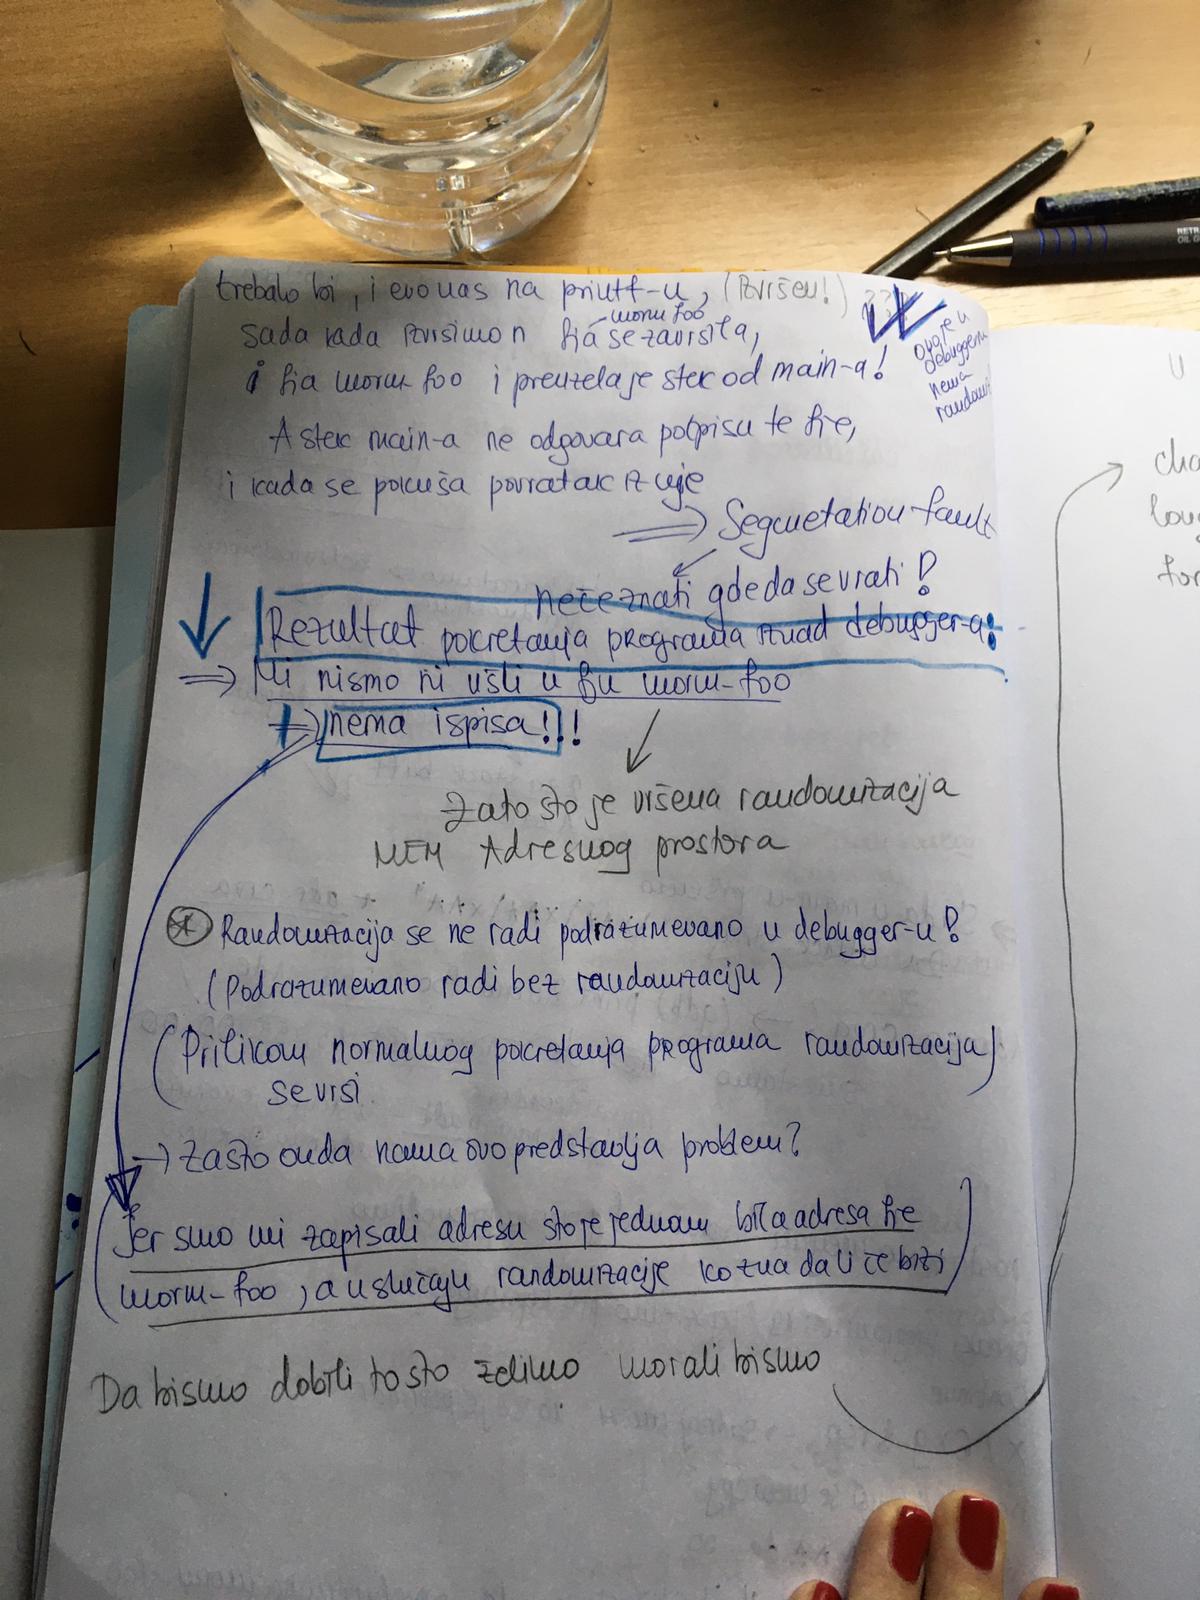 trebalo bi, i evo nas na printf-u, (Izvršen!) ???
worm foo
sada kada izvrsimo n fja se završila,
Ovo je u
debuggeru
nema
randomi
i fja worm-foo i preuzela je stek od main-a!
A stek main-a ne odgovara potpisu te fje,
i kada se pokuša povratak iz nje
=> Segmetation fault
neće znati gde da se vrati!
Rezultat pokretanja programa iznad debugger-a:
=> Mi nismo ni ušli u fju worm-foo
=> nema ispisa!!!
Zato što je vršena randomizacija
MEM Adresnog prostora
* Randomizacija se ne radi podrazumevano u debugger-u!
(Podrazumevano radi bez randomizaciju)
(Prilikom normalnog pokretanja programa randomizacija)
se vrsi.
-> Zašto onda nama ovo predstavlja problem?
Jer smo mi zapisali adresu što je jednom bila adresa fje
worm-foo, a u slučaju randomizacije ko zna da li će biti
Da bismo dobili to sto želimo morali bismo
U
cha
long
for
RETRA
OIL G